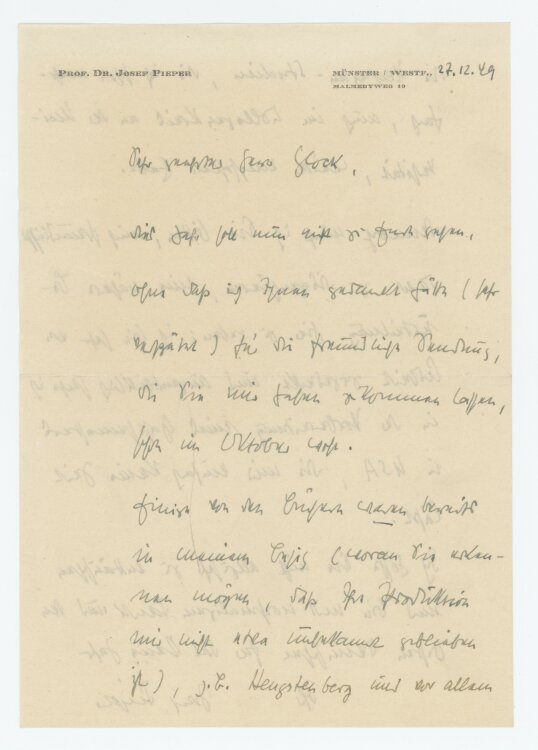 PROF. DR. JOSEF PIEPER
MÜNSTER / WESTF., 27.12.49
MALMEDYWEG 10
Sehr geehrter Herr Glock,
dies Jahr soll nun nicht zu Ende gehen,
ohne dass ich Ihnen gedankt hätte (sehr
verspätet) für die freundliche Sendung,
die Sie mir haben zukommen lassen,
schon im Oktober wohl.
Einige von den Büchern waren bereits
in meinem Besitz (woran Sie erken-
nen mögen, dass Ihre Produktion
mir nicht etwa unbekannt geblieben
ist), z.B. Hengstenberg und vor allem